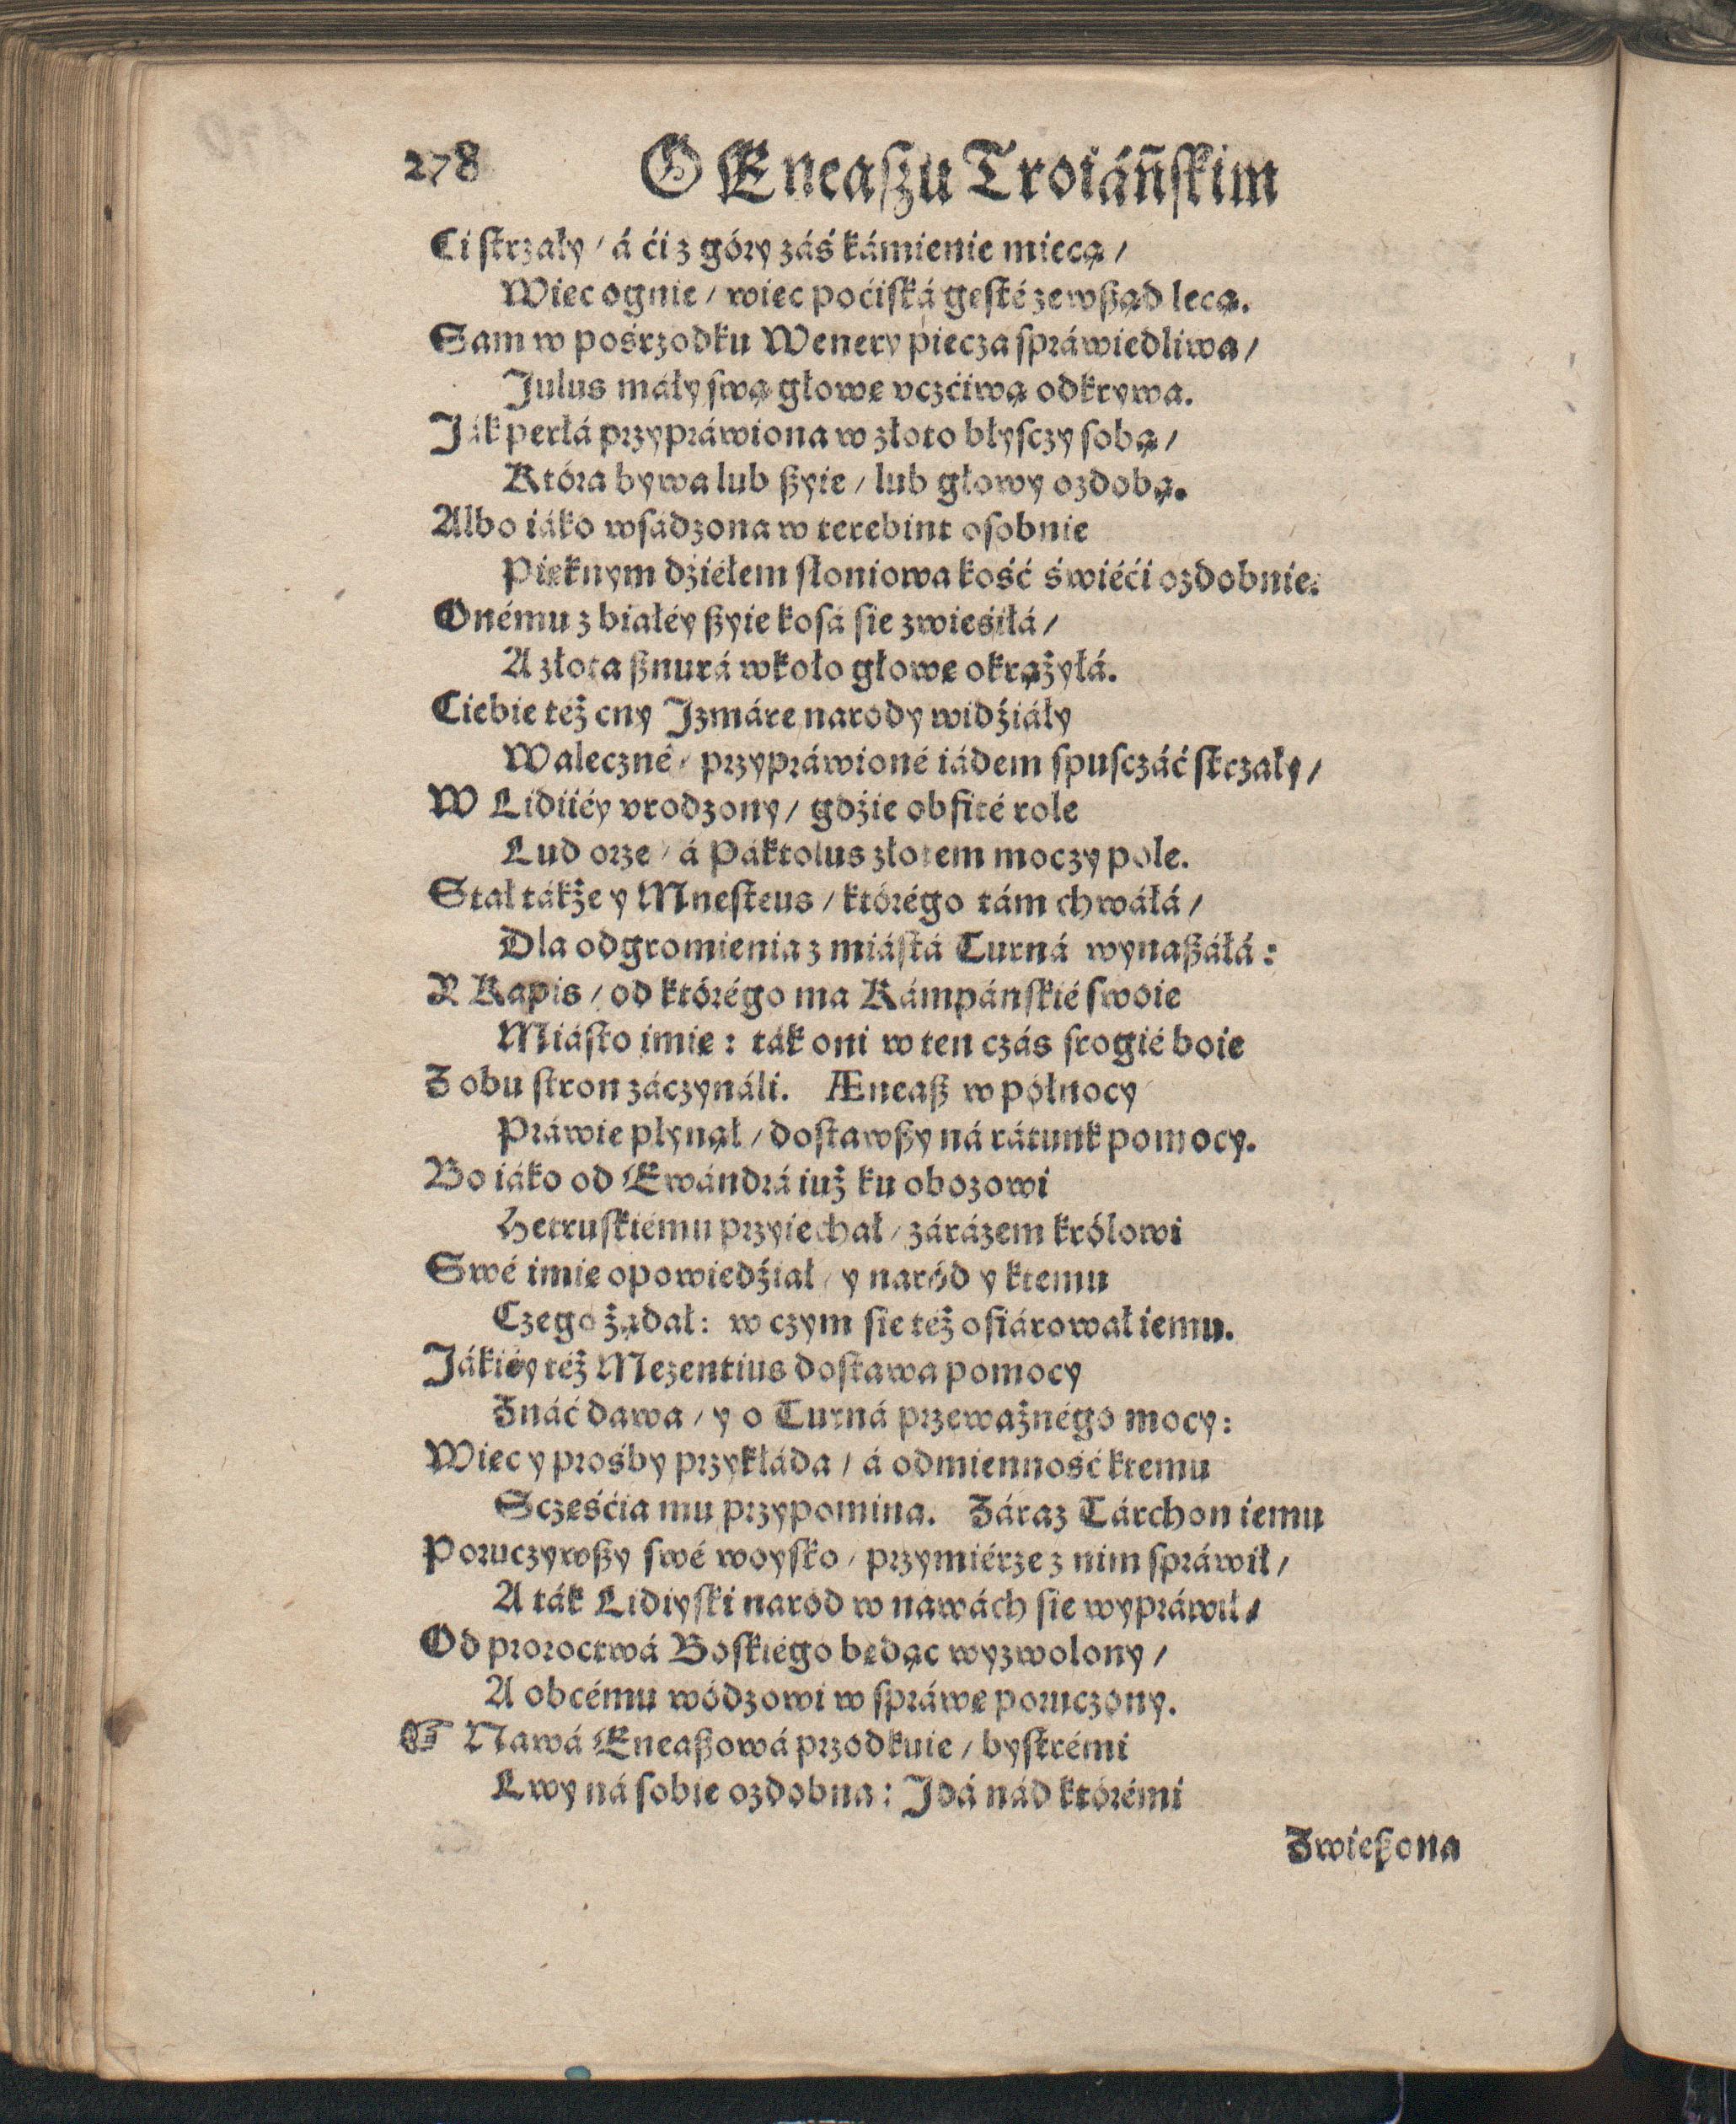 278 O Eneaſzu Troiáńſkim
Ci ſtrzały / á ći z góry záś kámienie miecą /
Wiec ognie / wiec poćiſká geſté zewßąd lecą.
Sam w pośrzodku Wenery piecza ſpráwiedliwa /
Julus máły ſwą głowę vczćiwą odkrywa.
Ják perłá przypráwiona w złoto błyſczy ſobą /
Która bywa lub ßyie / lub głowy ozdobą.
Albo iáko wſádzona w terebint oſobnie
Pięknym dźiéłem ſłoniowa kość świéći ozdobnie.
Onému z białéy ßyie koſá ſie zwieśiłá /
A złota ßnurá wkoło głowę okrążyłá.
Ciebie téż cny Jzmáre narody widźiáły
Waleczné / przypráwioné iádem ſpuſczáć ſtrzały /
W Lidiiéy vrodzony / gdźie obfité role
Lud orze / á Páktolus złotem moczy pole.
Stał tákże y Mneſteus / którégo tám chwáłá /
Dla odgromienia z miáſtá Turná wynaßáłá:
Y Kapis / od którégo ma Kámpánſkié ſwoie
Miáſto imię: ták oni w ten czás ſrogié boie
Z obu ſtron záczynáli. Æneaß w północy
Práwie płynął / doſtawßy ná rátunk pomocy.
Bo iáko od Ewándrá iuż ku obozowi
Hetruſkiému przyiechał / zárázem królowi
Swé imię opowiedźiał / y naród y ktemu
Czego żądał: w czym ſie téż ofiárował iemu.
Jákiéy téż Mezentius doſtawa pomocy
Znáć dawa / y o Turná przeważnégo mocy:
Więc y prośby przykłáda / á odmienność ktemu
Sczęśćia mu przypomina. Záraz Tárchon iemu
Poruczywßy ſwé woyſko / przymiérze z nim ſpráwił /
A ták Lidiyſki naród w nawách ſie wypráwił /
Od proroctwá Boſkiégo będąc wyzwolony /
A obcému wódzowi w ſpráwę poruczony.
☞ Nawá Eneaßowá przodkuie / byſtrémi
Lwy ná ſobie ozdobna: Jdá nád którémi
Zwießona